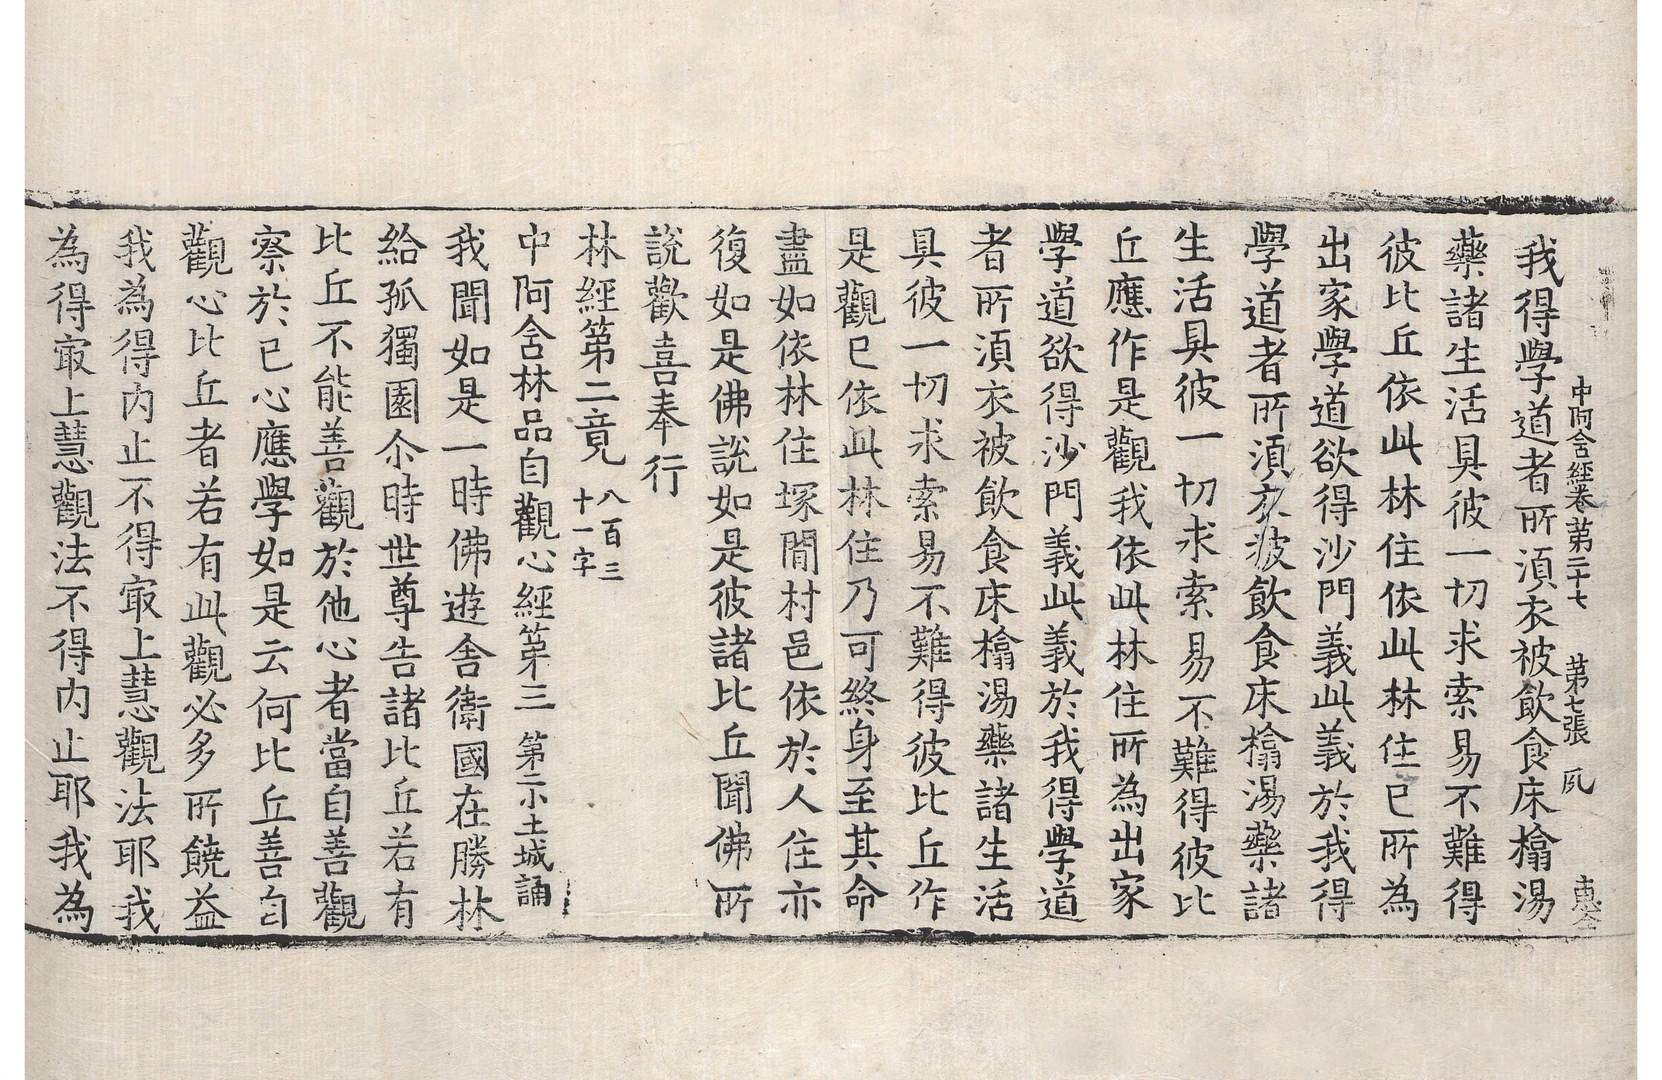 中阿含經卷第二十七　第七張　夙　惠全
我得學道者所湏衣被飲食床㯓湯
藥諸生活具彼一切求索易不難得
彼比丘依此林住依此林住已所為
出家學道欲得沙門義此義於我得
學道者所湏衣被飲食床㯓湯藥諸
生活具彼一切求索易不難得彼比
丘應作是觀我依此林住所為出家
學道欲得沙門義此義於我得學道
者所湏衣被飲食床㯓湯藥諸生活
具彼一切求索易不難得彼比丘作
是觀已依此林住乃可終身至其命
盡如依林住塚閒村邑依於人住亦
復如是佛說如是彼諸比丘聞佛所
說歡喜奉行
林經第二竟 八百三十一字
中阿含林品自觀心經第三 第二小土城誦
我聞如是一時佛遊舍衛國在勝林
給孤獨園尒時世尊告諸比丘若有
比丘不能善觀於他心者當自善觀
察於己心應學如是云何比丘善自
觀心比丘者若有此觀必多所饒益
我為得內止不得㝡上慧觀法耶我
為得㝡上慧觀法不得內止耶我為